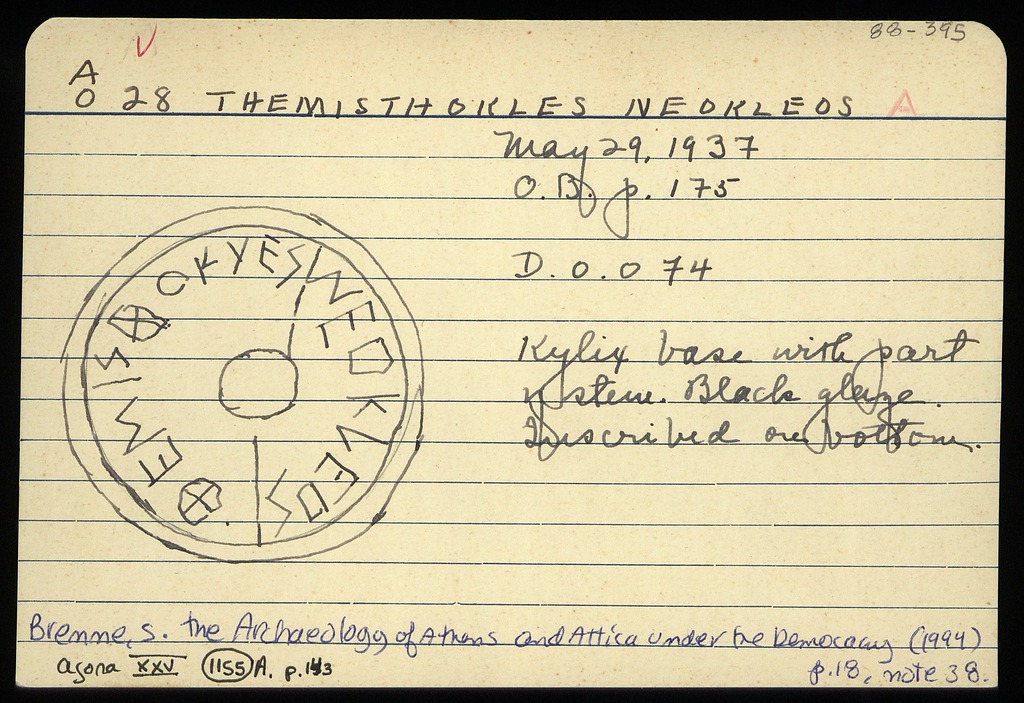 88-395
V
A
O 28 THEMISTHOKLES NEOKLEOS A
May 29, 1937
O.B. p. 175
D.O.O 74
⊗EMIS⊗OKVES NEOKVEOS
Kylix base with part
of stem. Black glaze.
Inscribed on bottom.
Brenne, S. the Archaeology of Athens and Attica under the Democracy (1994)
p.18, note 38.
Agora XXV 1155 A. p.143